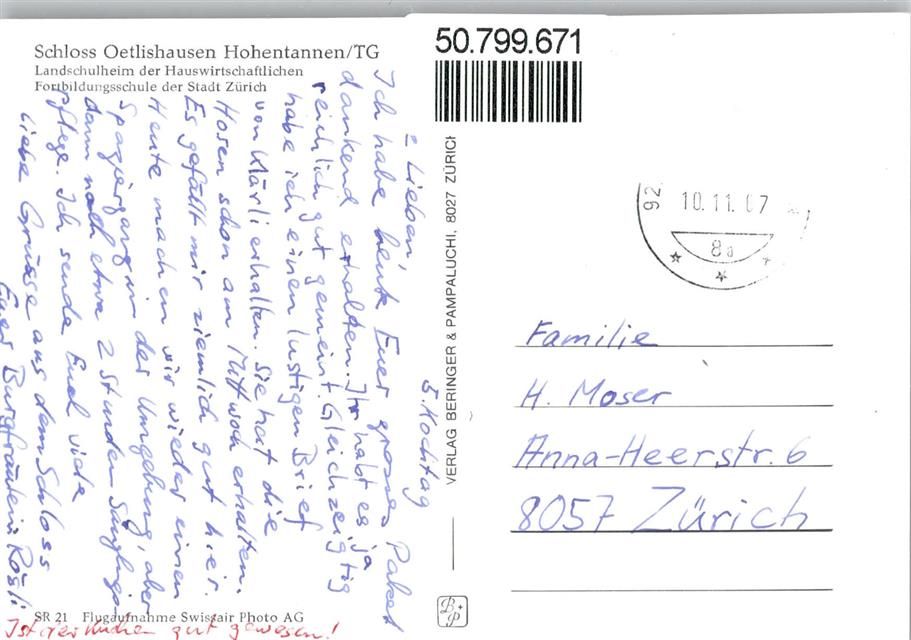 Schloss Oetlishausen Hohentannen/TG
Landschulheim der Hauswirtschaftlichen
Fortbildungsschule der Stadt Zürich
5. Kochtag
Lieben,
Ich habe heute Euer grosses Paket
dankend erhalten. Ihr habt es ja
reichlich gut gemeint. Gleichzeitig
habe ich einen lustigen Brief
von Klärli erhalten. Sie hat die
Hosen schon am Mittwoch erhalten.
Es gefällt mir ziemlich gut hier.
Heute machen wir wieder einen
Spaziergang in der Umgebung, aber
dann noch etwa 2 Stunden Säuglings-
pflege. Ich sende Euch viele
liebe Grüsse aus dem Schloss
Euer Burgfräulein Rösli
Ist der Kuchen gut gewesen!
SR 21 Flugaufnahme Swissair Photo AG
VERLAG BERINGER & PAMPALUCHI, 8027 ZÜRICH
50.799.671
92
10.11.67
8a
Familie
H. Moser
Anna-Heerstr. 6
8057 Zürich
B+P